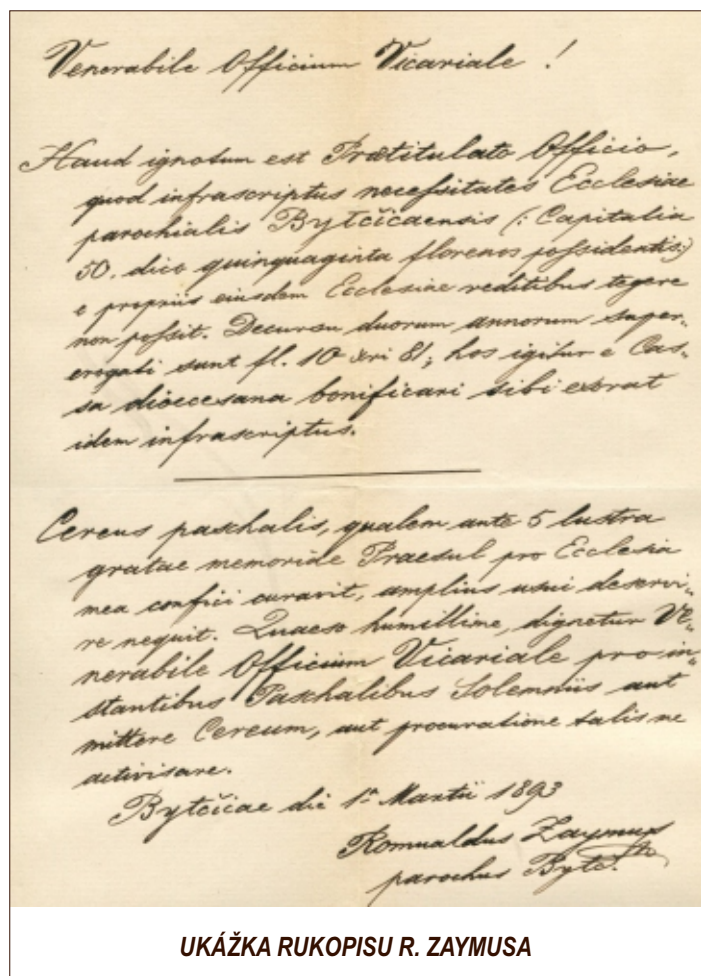 Venerabile Officium Vicariale !
Haud ignotum est Prætitulato Officio,
quod infrascriptus necessitates Ecclesiae
parochialis Bytčicaensis (: Capitalia
50. dico quinquaginta florenos possidentis:)
e propriis eiusdem Ecclesiae reditibus tegere
non possit. Decursu duorum annorum super-
erogati sunt fl. 10 xri 81; hos igitur e Cas-
sa dioecesana bonificari sibi exorat
idem infrascriptus.
Cereus paschalis, qualem ante 5 lustra
gratae memoriae Praesul pro Ecclesia
mea confici curavit, amplius usui deservi-
re nequit. Quaeso humillime, dignetur Ve-
nerabile Officium Vicariale pro in-
stantibus Paschalibus Solemniis aut
mittere Cereum, aut procuratione talis me
activisare.
Bytčicae die 1ª Martii 1893
Romualdus Zaymus
parochus Bytč.
UKÁŽKA RUKOPISU R. ZAYMUSA